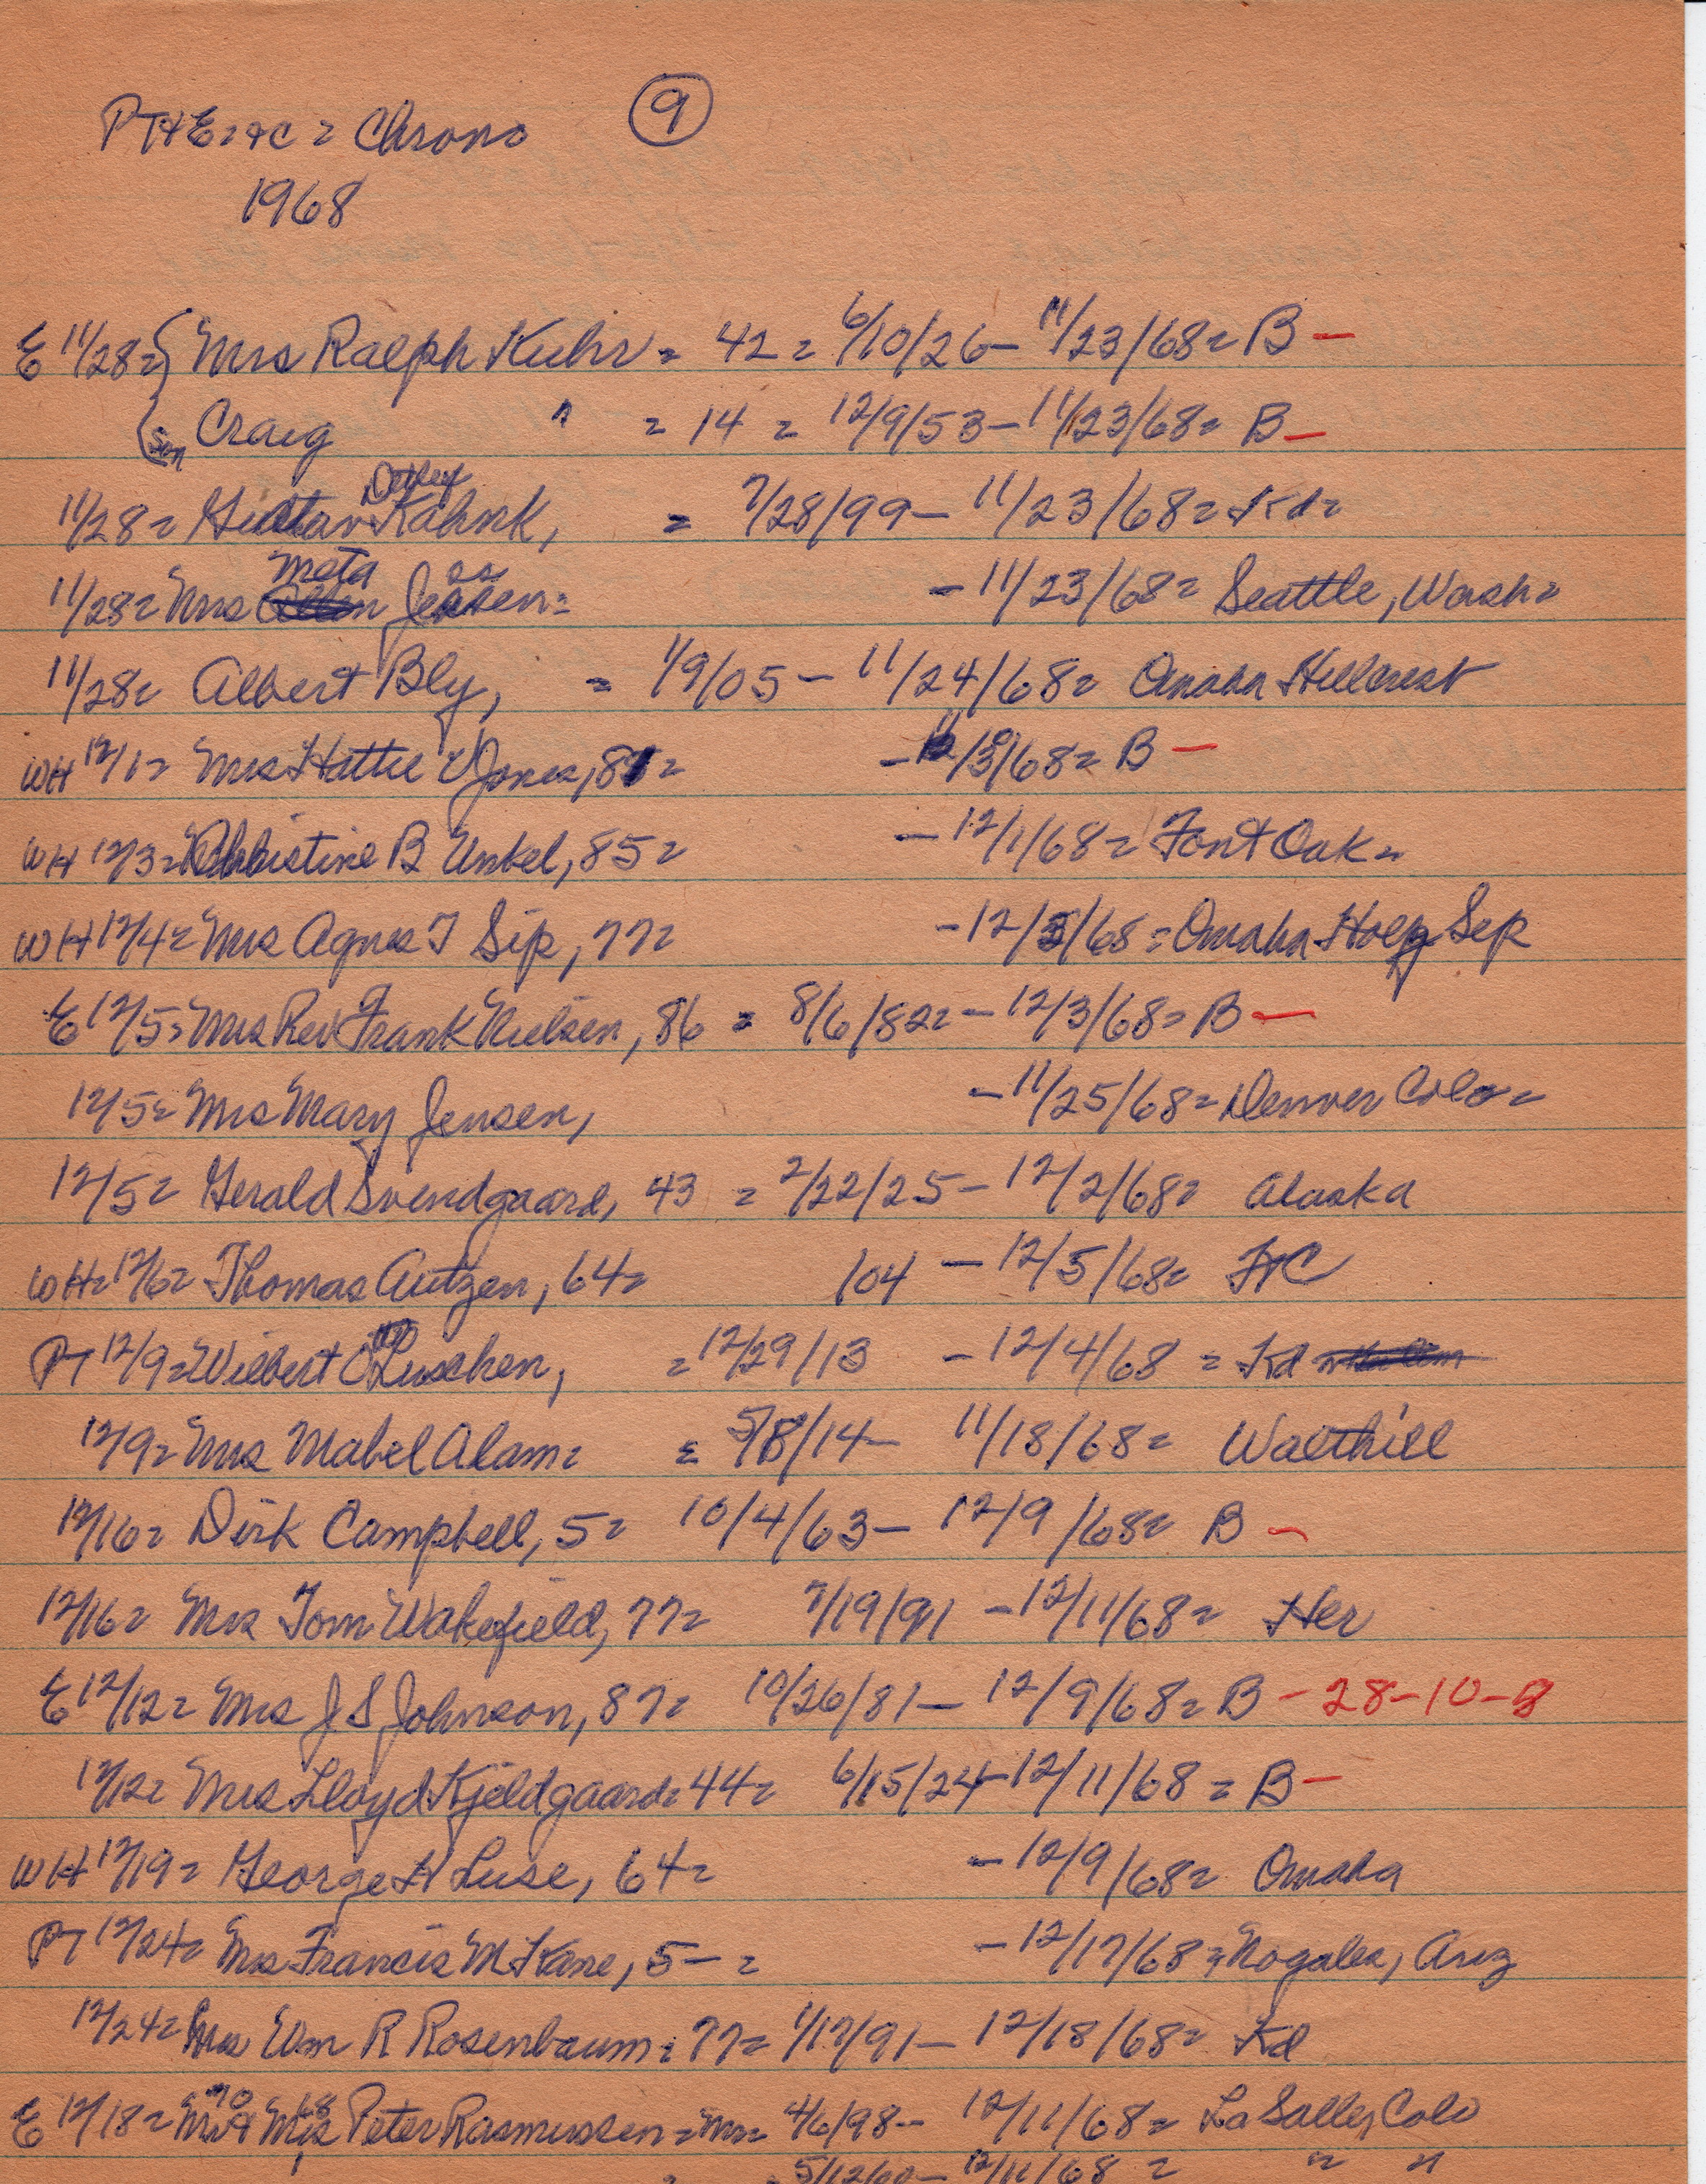 PT & E = & C = Chrono ⑨
1968
E 11/28 = { Mrs Ralph Kuhr = 42 = 6/10/26 - 11/23/68 = B -
{ son Craig " = 14 = 12/9/53 - 11/23/68 = B -
Detlef
11/28 = Gustav Kahnk, = 7/28/99 - 11/23/68 = Kd =
Meta ss
11/28 = Mrs Jessen = - 11/23/68 = Seattle, Wash =
11/28 = Albert Bly, = 1/9/05 - 11/24/68 = Omaha Hillcrest
WH 12/1 = Mrs Hattie Jones, 81 = - 11/ /68 = B -
WH 12/3 = Christine B Unkel, 85 = - 12/1/68 = Font Oak =
WH 12/4 = Mrs Agnes T Sip, 77 = - 12/3/68 = Omaha Holy Sep
E 12/5 = Mrs Rev Frank Nielsen, 86 = 8/6/82 = - 12/3/68 = B -
12/5 = Mrs Mary Jensen, - 11/25/68 = Denver Colo =
12/5 = Gerald Svendgaard, 43 = 2/22/25 - 12/2/68 = Alaska
WH = 12/6 = Thomas Autzen, 64 = 104 - 12/5/68 = FtC
PT 12/9 = Wilbert Luschen, = 12/29/13 - 12/4/68 = Kd
12/9 = Mrs Mabel Alam = = 5/8/14 - 11/18/68 = Walthill
12/16 = Dirk Campbell, 5 = 10/4/63 - 12/9/68 = B -
12/16 = Mrs Tom Wakefield, 77 = 7/19/91 - 12/11/68 = Her
E 12/12 = Mrs J S Johnson, 87 = 10/26/81 - 12/9/68 = B - 28-10-8
12/12 = Mrs Lloyd Kjeldgaard = 44 = 6/15/24 - 12/11/68 = B -
WH 12/19 = George H Luse, 64 = - 12/9/68 = Omaha
PT 12/24 = Mrs Francis M Kane, 5- = - 12/17/68 = Nogales, Ariz
12/24 = Mrs Wm R Rosenbaum = 77 = 1/17/91 - 12/18/68 = Kd
70 68
E 12/18 = Mr & Mrs Peter Rasmussen = Mr = 4/6/98 - 12/11/68 = LaSalle, Colo
= 5/12/00 - 12/11/68 = " "